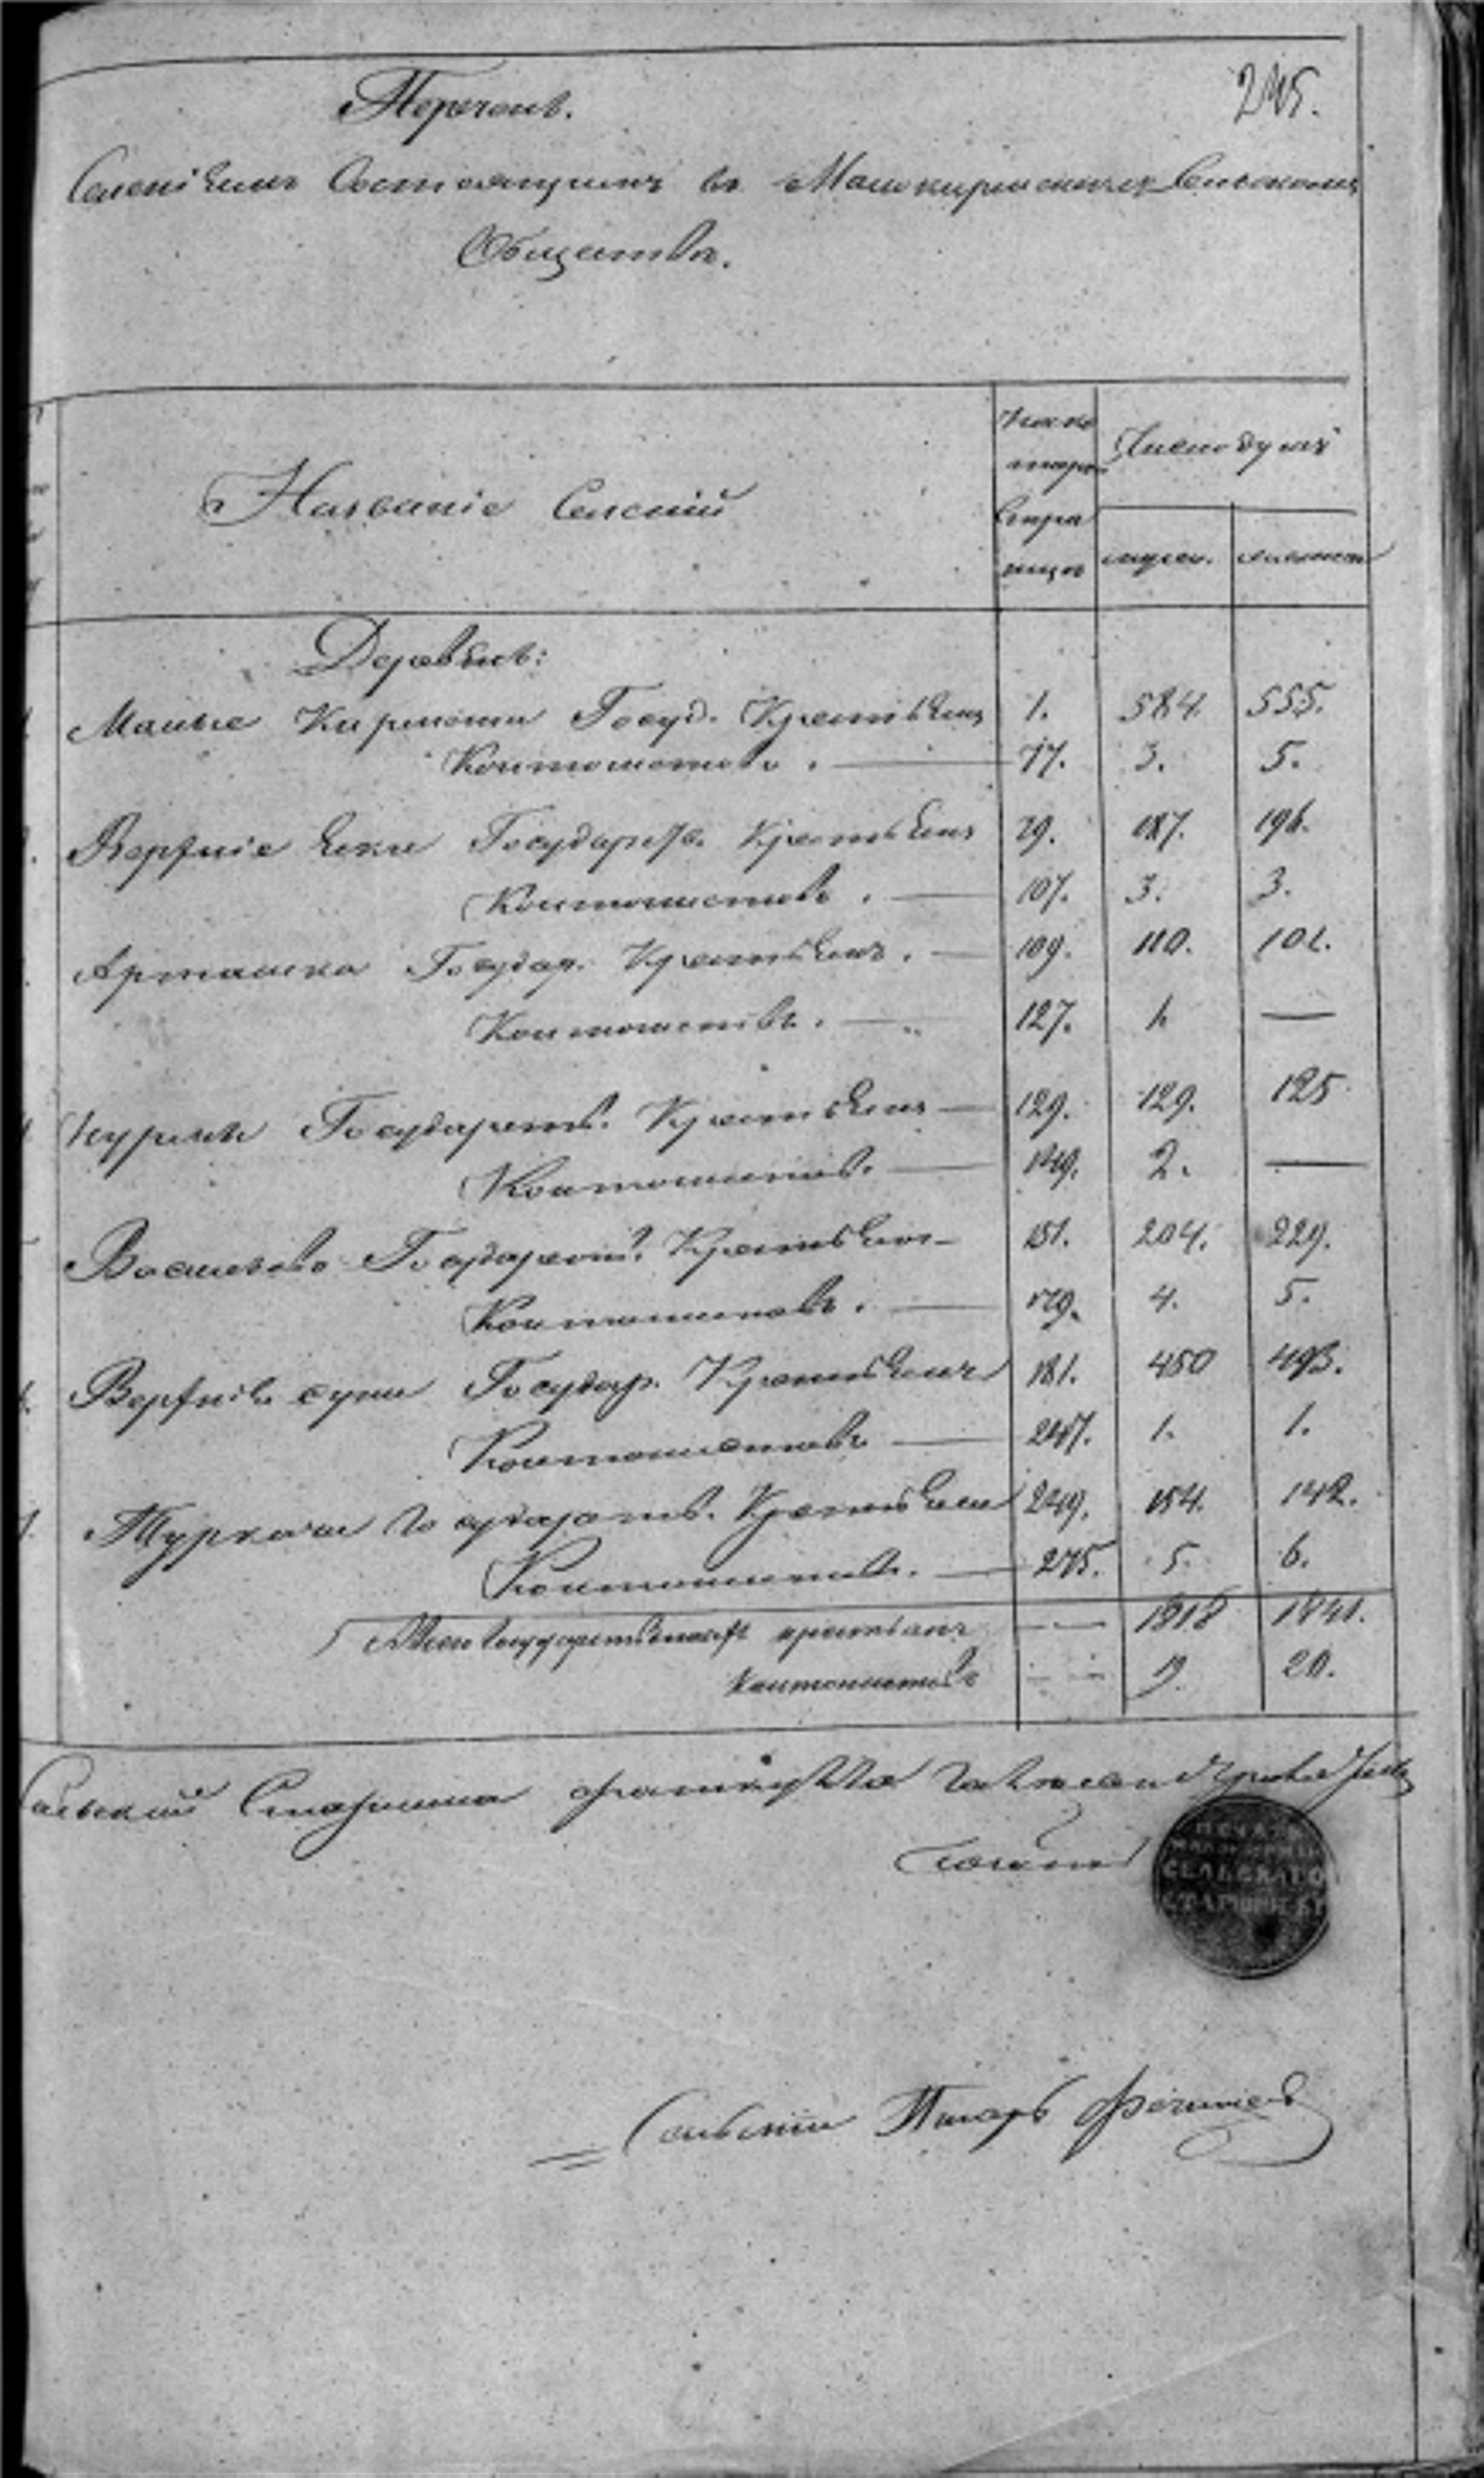 245.
Перечень
Селеніямъ Состоящимъ въ Малокирменскомъ Сельскомъ
Обществѣ.
Названіе Селеній
Число душъ
муж. женск.
Деревнѣ:
Малые Кирмени Госуд. Крестьянъ 1. 584. 555.
Кантонистовъ. 77. 3. 5.
Верхніе Государств. Крестьянъ 79. 187. 196.
Кантонистовъ. 107. 3. 3.
Арташка Государ. Крестьянъ. 109. 110. 101.
Кантонистовъ. 127. 1. —
Государств. Крестьянъ — 129. 129. 125
Кантонистовъ. — 149. 2. —
Васильево Государств. Крестьянъ 151. 204. 229.
Кантонистовъ. — 179. 4. 5.
Верхніе суни Государ. Крестьянъ 181. 450 493.
Кантонистовъ — 247. 1. 1.
Туркачи Государств. Крестьянъ 249. 154. 142.
Кантонистовъ. — 275. 5. 6.
Государственныхъ крестьянъ — 1818 1841.
Кантонистовъ — 19. 20.
Сельский Старшина
ПЕЧАТЬ
СЕЛЬСКАГО
СТАРШИНЫ
Сельскій Писарь